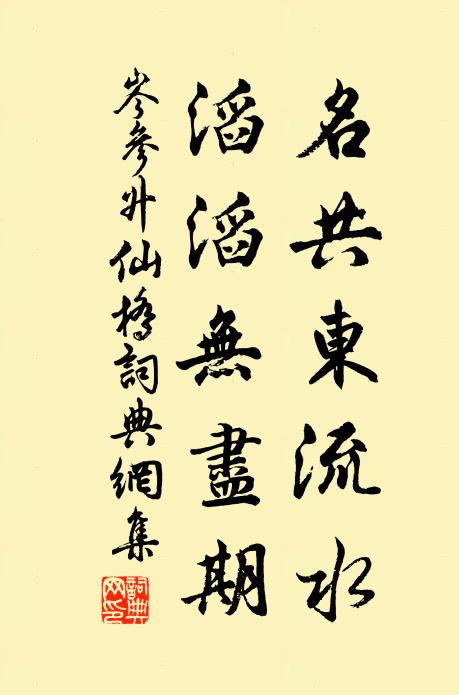 名共東流水
滔滔無盡期
岑參升仙橋詞典網集
詞典网印